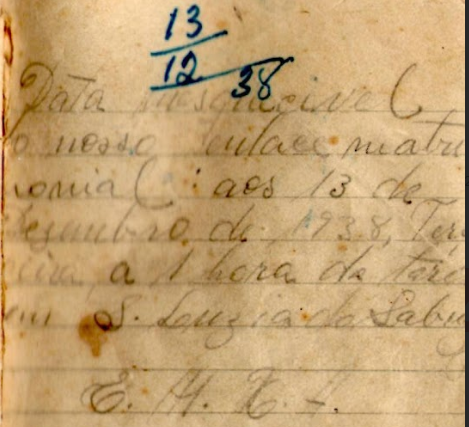 13
12 38
Data inesquecivel
o nosso enlace matri
monial: aos 13 de
Dezembro de 1938, Terç
feira, a 1 hora da tard
em S. Luzia do Sabug
E. M.